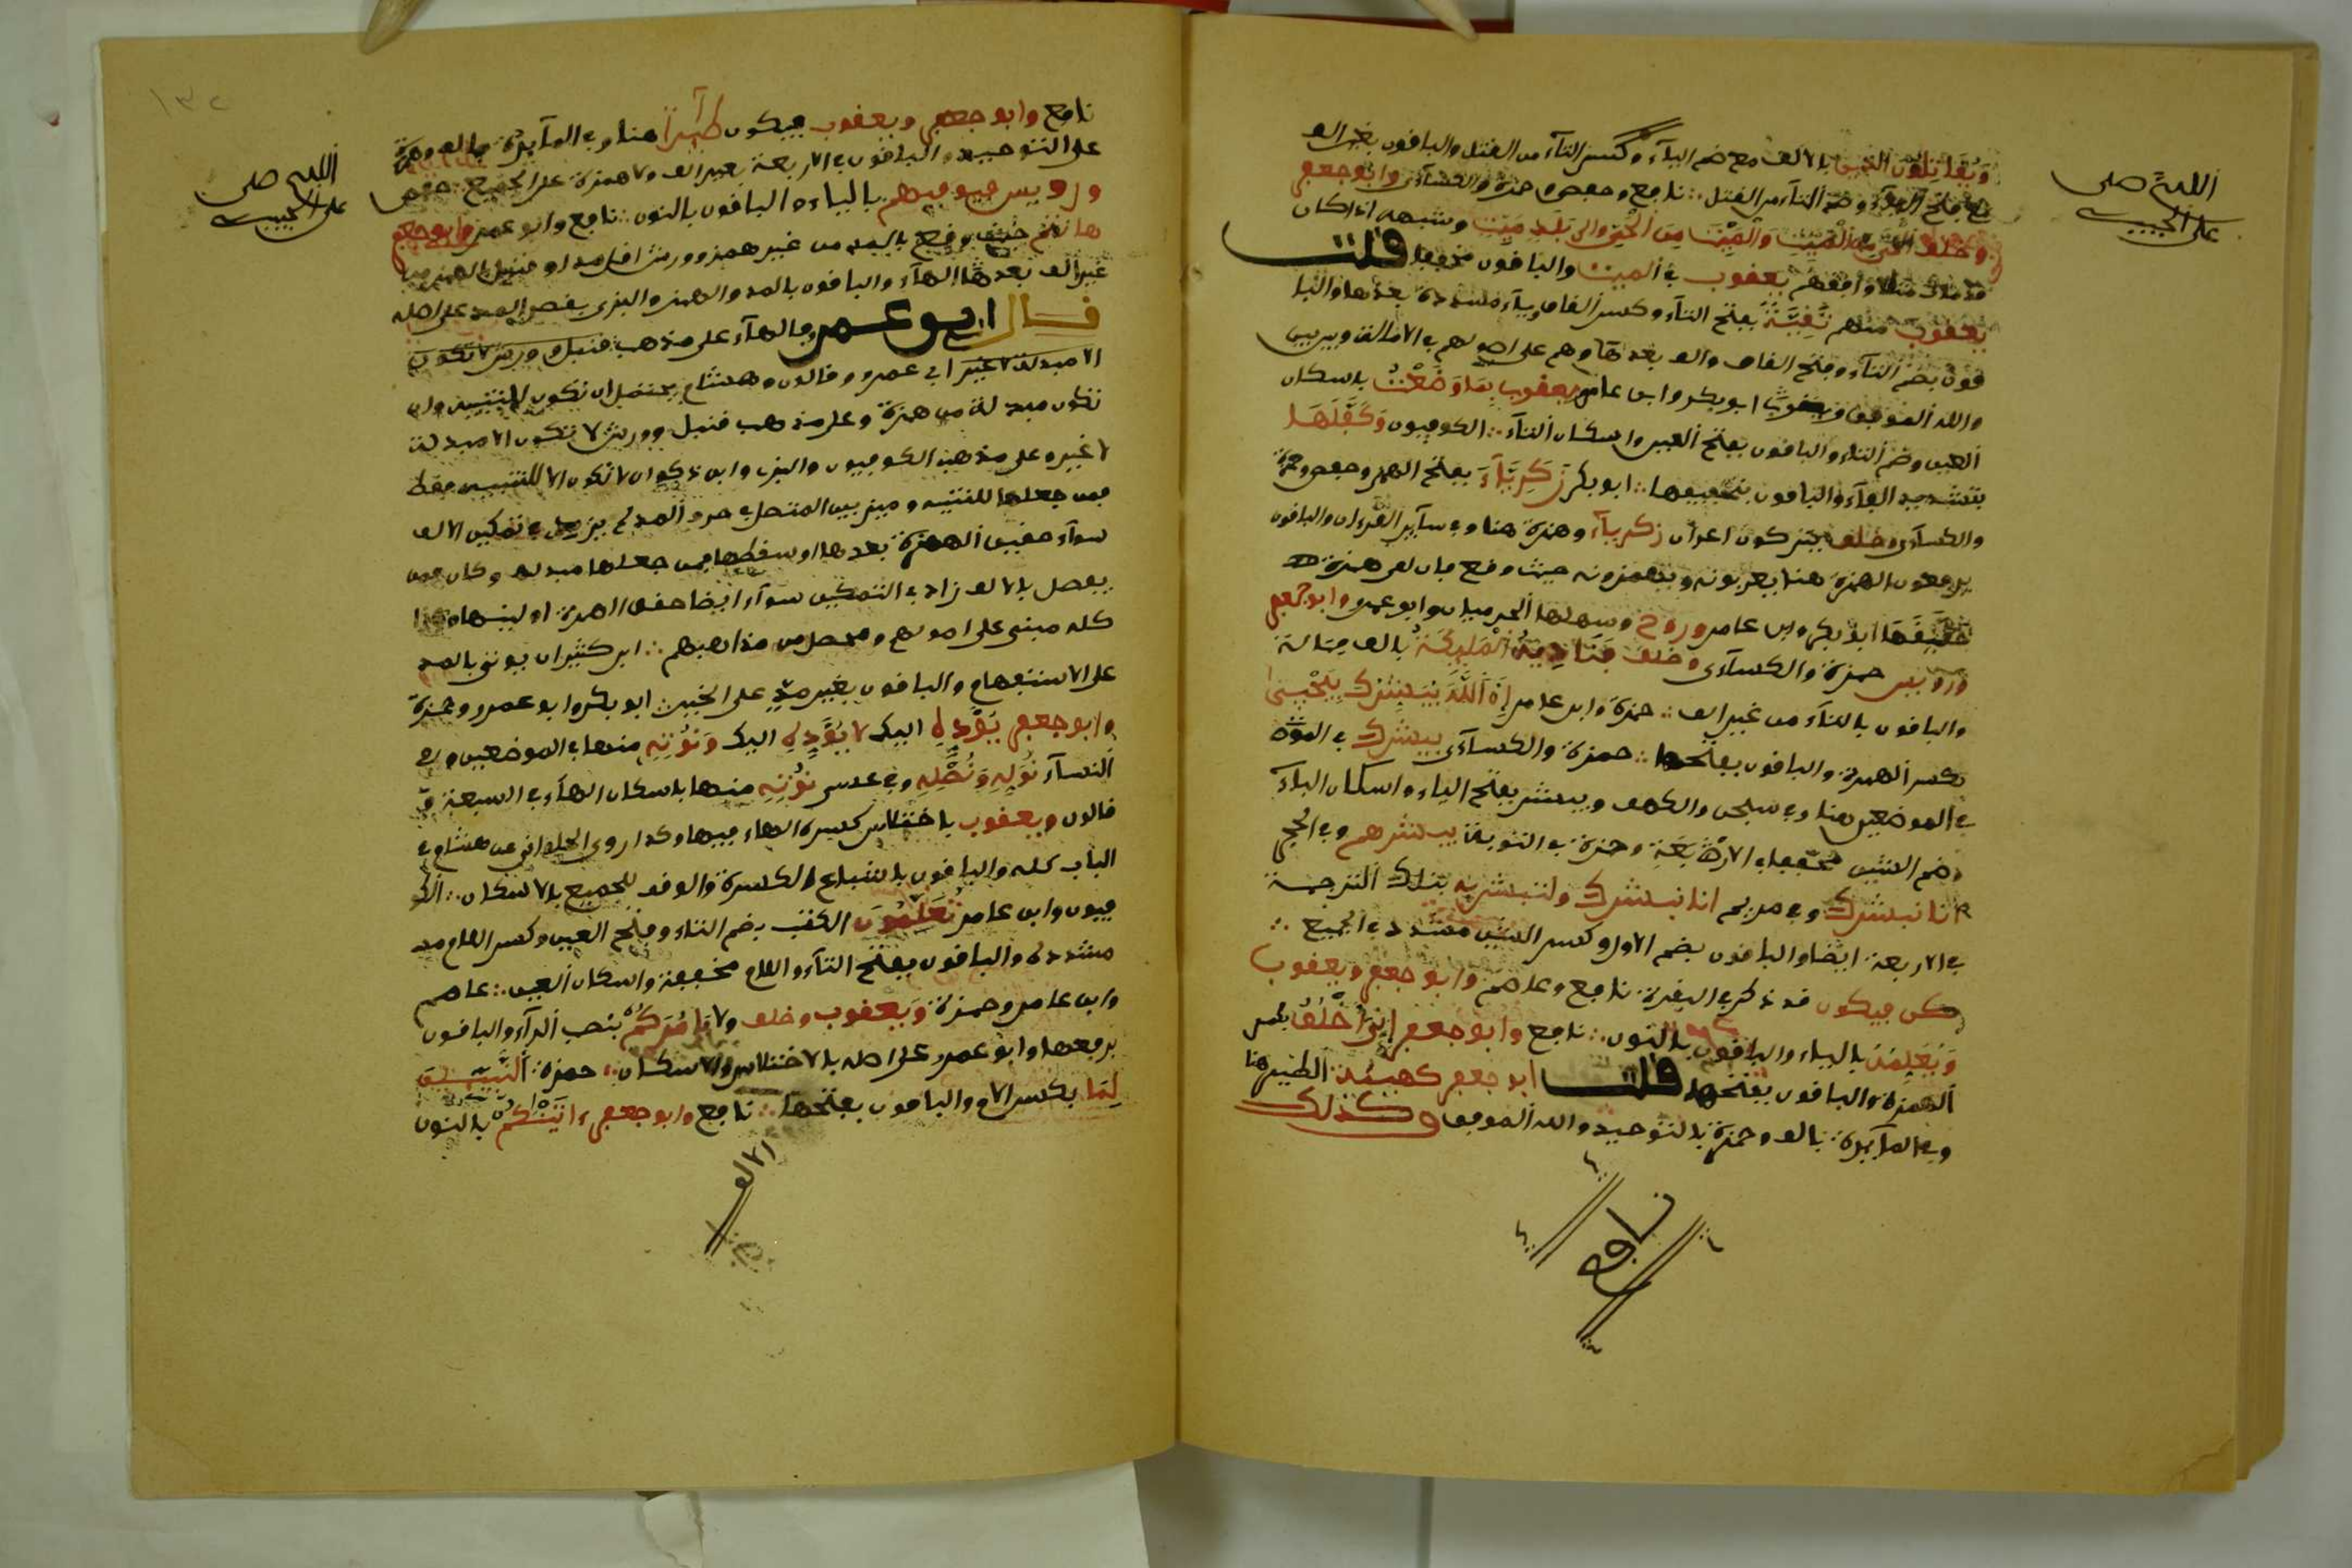 ويقاتلون الذين بالالف مع ضم اليآء وكسر التآء من القتل والباقون بغير الف
مع فتح اليآء وضم التآء من القتل ∴ نافع وحفص وحمزة والكسآءى وابو جعفر
وخلف الحي من الميت والميت من الحي والى بلد ميت وشبهه اذا كان
قد مات مثقلا وافقهم يعقوب في الميت والباقون مخففا قلت
يعقوب منهم تقية بفتح التآء وكسر القاف ويآء مشددة بعدها والبا
قون بضم التآء وفتح القاف والف بعدها وهم على اصولهم في الامالة وبين بين
والله الموفق ابو بكر وابن عامر ويعقوب بما وضعت باسكان
العين وضم التاء والباقون بفتح العين واسكان التآء ∴ الكوفيون وكفلها
بتشديد الفآء والباقون بتخفيفها ∴ ابو بكر زكريآء بفتح الهمزة وحفص وحمزة
والكسآءى وخلف يتركون اعراب زكريآء وهمزة هنا وفي سآير القرءان والباقون
يرفعون الهمزة هنا يعربونه ويهمزونه حيث وقع فان لقى همزة
حققها ابو بكر وابن عامر وروح وسهلها الحرميان وابو عمرو وابو جعفر
ورويس حمزة والكسآءى وخلف فناديه الملئكة بالف ممالة
والباقون بالتآء من غير الف ∴ حمزة وابن عامر ان الله يبشرك بيحيى
بكسر الهمزة والباقون بفتحها ∴ حمزة والكسآءى يبشرك في الموضعين
في الموضعين هنا وفي سبحن والكهف ويبشر بفتح الياء واسكان البآء
وضم الشين مخففا في الاربعة وحمزة في التوبة يبشرهم وفي الحجر
انا نبشرك وفي مريم انا نبشرك ولتبشر به بتلك الترجمة
في الاربعة ايضا والباقون بضم الاول وكسر الشين مشددا في الجميع ∴
كن فيكون قد ذكر في البقرة نافع وعاصم وابو جعفر ويعقوب
ويعلمه بالياء والباقون بالنون ∴ نافع وابو جعفر اني اخلق بكسر
الهمزة والباقون بفتحها قلت ابو جعفر كهيئة الطير هنا
وفي المآيدة بالف وهمزة بالتوحيد والله الموفق وكذلك
نافع
اللهم صل
على الحبيب
نافع وابو جعفر ويعقوب فيكون طيرا هنا وفي المآيدة بالف وهمزة
على التوحيد والباقون في الاربعة بغير الف ولا همزة على الجميع حفص
ورويس فيوفيهم بالياء والباقون بالنون ∴ نافع وابو عمرو وابو جعفر
هانتم حيث وقع بالمد من غير همز وورش اقل مدا وقنبل بالهمز من
غير الف بعد الهآء والباقون بالمد والهمز والبزى بقصر المد على اصله
قال ابو عمرو فالهآء على مذهب قنبل وورش لا تكون
الا مبدلة لا غير ابي عمرو وقالون وهشام يحتمل ان تكون للتنبيه وان
تكون مبدلة من همزة وعلى مذهب قنبل وورش لا تكون الا مبدلة
لا غير وعلى مذهب الكوفيون والبزى وابن ذكوان لا تكون الا للتنبيه فقط
فمن جعلها للتنبيه وميز بين المتصل في حروف المد لم يزد في تمكين الالف
سوآء حققت الهمزة بعدها او سقطها ومن جعلها مبدلة وكان ممن
يفصل بالالف زاد في التمكين سوآء ايضا حقق الهمزة او لينها وهذا
كله مبني على اصولهم ومحصل من مذاهبهم ∴ ابن كثير ان يوتى بالمد
على الاستفهام والباقون بغير مد على الخبر ∴ ابو بكر وابو عمرو وحمزة
وابو جعفر يؤده اليك لا يؤده اليك ونؤته منها في الموضعين وفي
النسآء نوله ونصله وفي عسق نؤته منها باسكان الهآء في السبعة
قالون ويعقوب باختلاس كسرة الهاء فيها وكذا روى الحلواني عن هشام في
الباب كله والباقون باشباع الكسرة والوقف للجميع بالاسكان ∴ الكو
فيون وابن عامر تعلمون الكتب بضم التاء وفتح العين وكسر اللام
مشددة والباقون بفتح التآء واللام مخففة واسكان العين ∴ عاصم
وابن عامر وحمزة ويعقوب وخلف ولا يامركم بنصب الرآء والباقون
برفعها وابو عمرو على اصله بالاختلاس والاسكان ∴ حمزة النبيين
لما بكسر اللام والباقون بفتحها ∴ نافع وابو جعفر ءاتينكم بالنون
والف
اللهم صل
على الحبيب
١٣٢